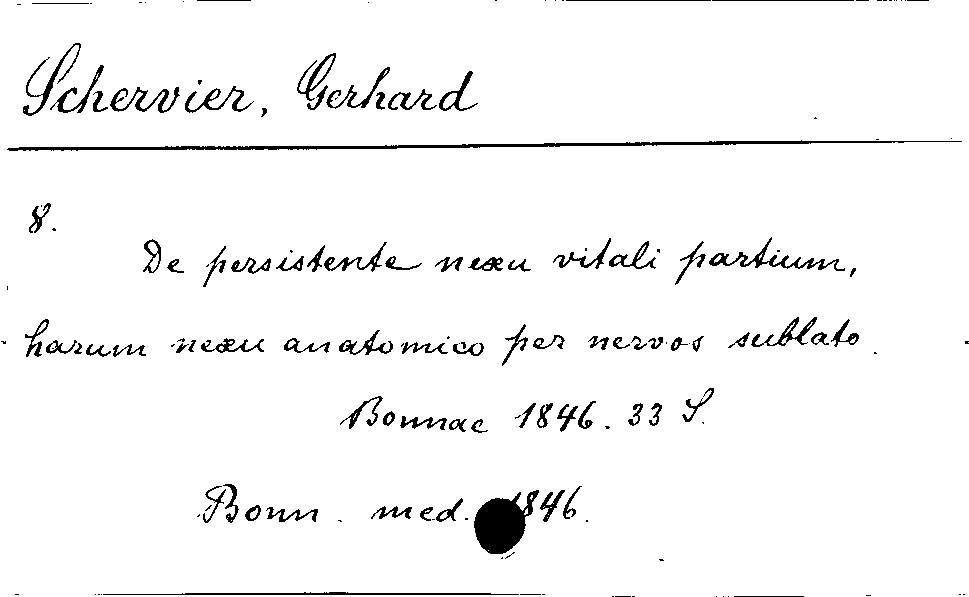 Schervier, Gerhard
8.
De persistente nexu vitali partium,
harum nexu anatomico per nervos sublato.
Bonnae 1846. 33 S.
Bonn. med. 1846.